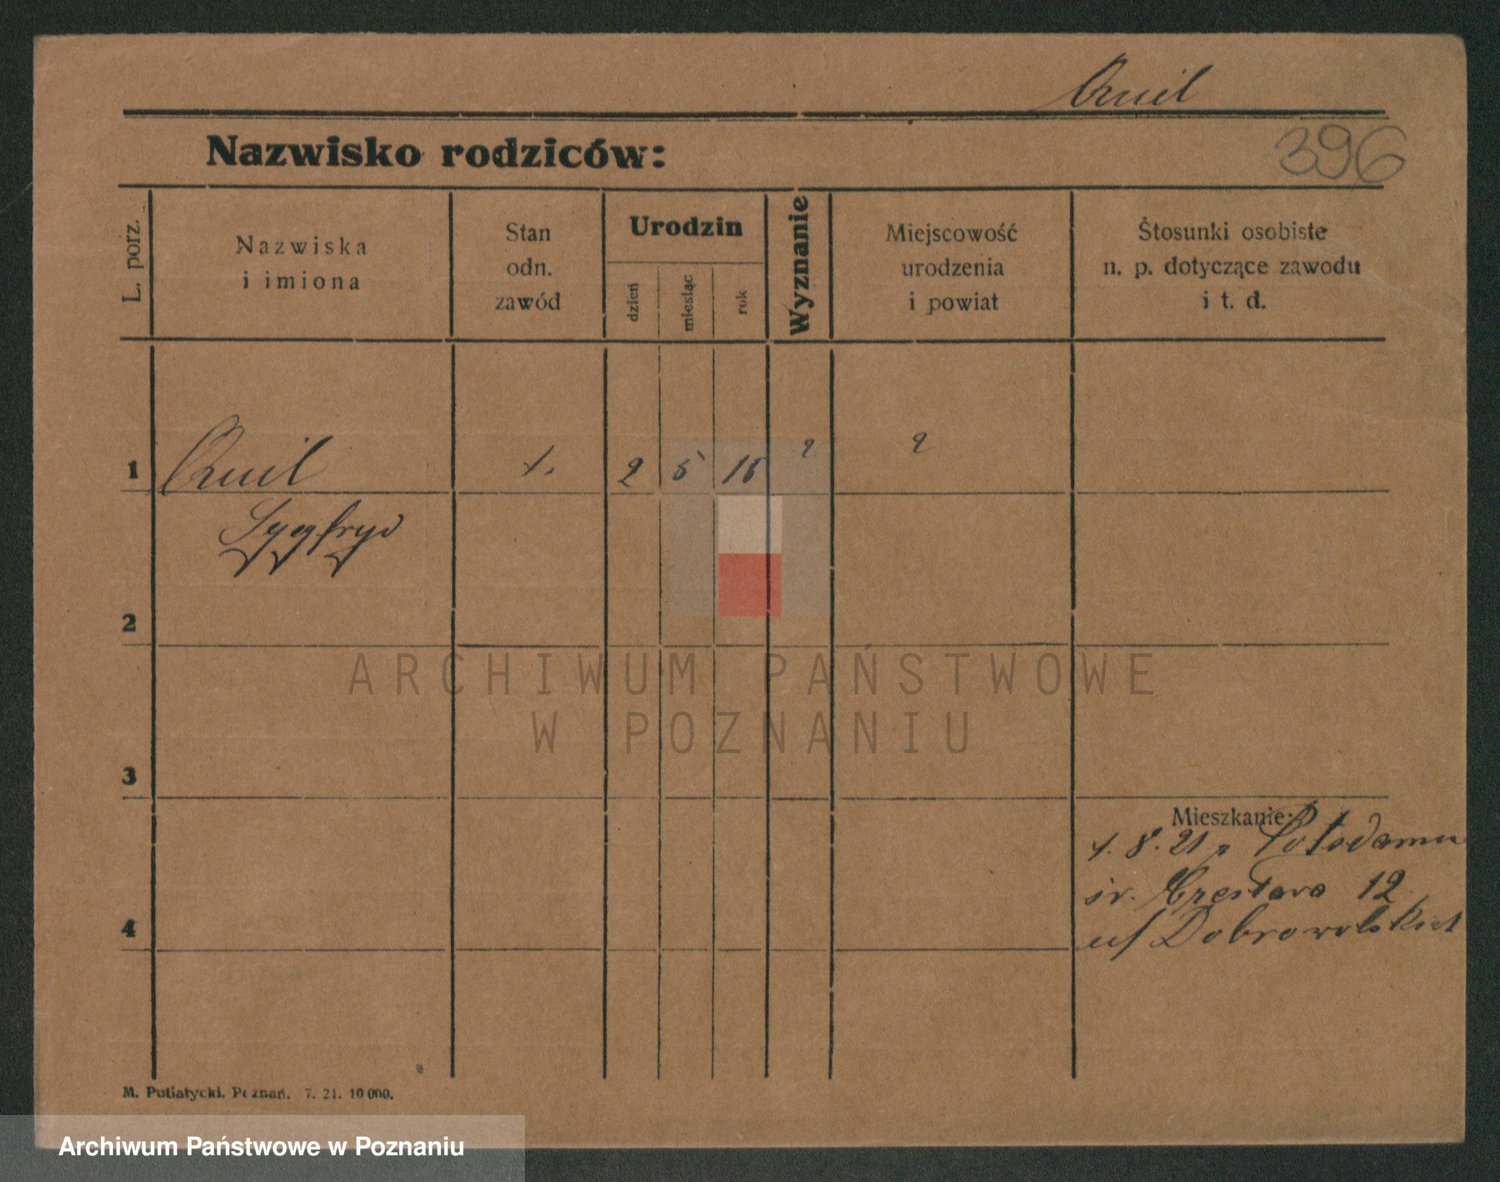 Quil
Nazwisko rodziców:
396
L. porz.
Nazwiska
i imiona
Stan
odn.
zawód
Urodzin
dzień
miesiąc
rok
Wyznanie
Miejscowość
urodzenia
i powiat
Stosunki osobiste
n. p. dotyczące zawodu
i t. d.
1
Quil
2 5 15
? ?
Sygfryd
2
3
4
Mieszkanie:
1. 8. 21 z Potsdamu
12
u/ Dobrowolskich
M. Putiatycki. Poznań. 7. 21. 10 000.
ARCHIWUM PAŃSTWOWE
W POZNANIU
Archiwum Państwowe w Poznaniu